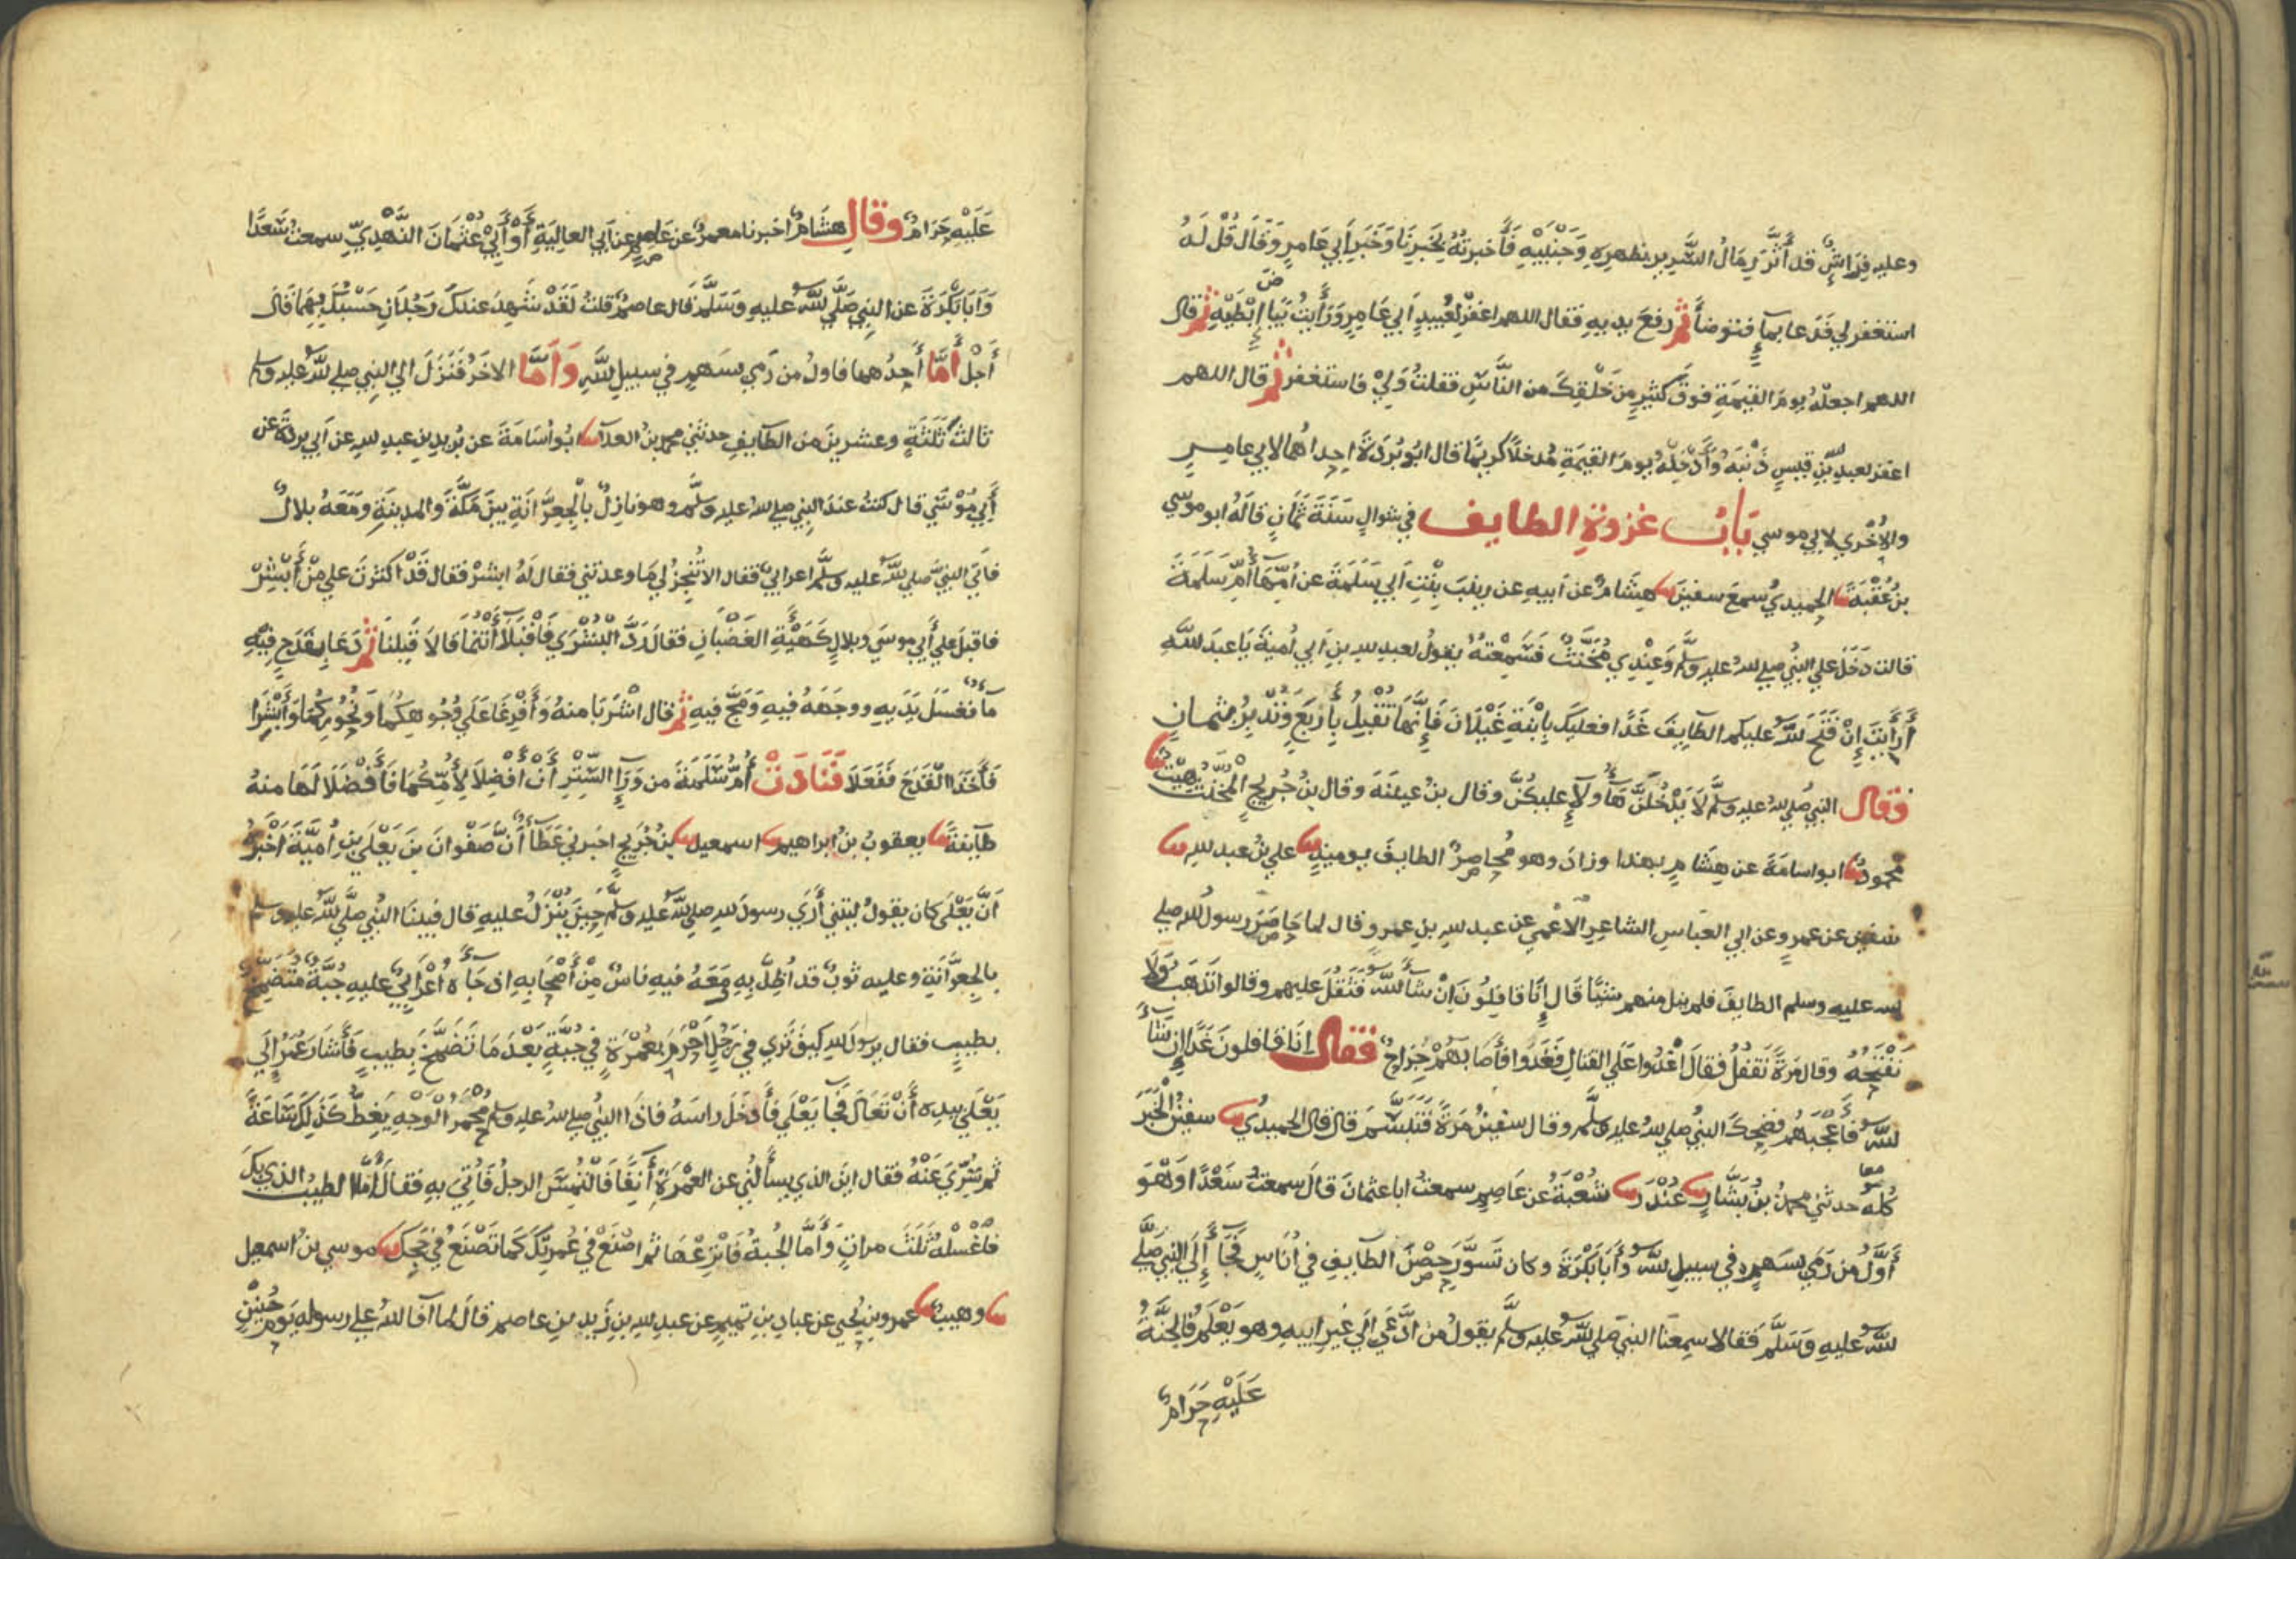 وعليه فِرَاشٌ قد أَثَّرَ رِمَالُ السَّرِيرِ بظهرِهِ وَجَنْبَيْهِ فَأَخبرتُهُ بِخَبَرِنَا وَخَبَرِ اَبي عَامِرٍ وَقَالَ قُلْ لَهُ
استغفر لي فَدَعا بمآءٍ فتوضأَ ثم رفعَ يديهِ فقال اللهم اغفرْ لعُبيدٍ اَبي عَامِرٍ وَرَأَيتُ بَيَاضَ اِبْطَيْهِ ثم قال
اللهم اجعلْهُ يومَ القيمَةِ فوقَ كثيرٍ مِن خَلْقِكَ من النَّاسِ فقلتُ وَلِيْ فاستغفر ثم قال اللهم
اغفر لعبدِ اللهِ بْنِ قيسٍ ذَنْبَهُ وَأَدْخِلْهُ يومَ القيمَةِ مُدخلًا كريمًا قال ابُو بُرْدَةَ احداهُما لابي عامِرٍ
والاُخْرَي لابي موسي بَابُ غزوةِ الطايف في شوالٍ سَنَةَ ثَمَانٍ قالَهُ ابو موسي
بن عُقْبَةَ نا الحميديُ سمعَ سفينَ نا هِشَامٌ عن اَبيهِ عن زينبَ بِنْتِ اَبي سَلَمَةَ عن أُمِّهَا أُمِّ سَلَمَةَ
قالت دَخَلَ علي النبيُ صلي لله عليه وسلم وَعِنْدِي مُخَنَّثٌ فَسَمِعْتُهُ يقولُ لعبدِ للهِ بنِ اَبي أُميةَ يَا عبدَ للهِ
أَرَأَيتَ إِنْ فَتَحَ للهُ عليكم الطايِفَ غَدًا فعليكَ بِابْنَةِ غَيْلَانَ فَإِنَّهَا تُقْبِلُ بِأَرْبَعٍ وَتُدْبِرُ بثمانٍ
فقال النبي صلي لله عليه وسلم لَا يَدْخُلَنَّ هَؤُلَآءِ عليكُنَّ وقال بنُ عيينَةَ وقال بنُ جُريجٍ الْمُخَنَّثُ هِيْتٌ نا
محمودٌ نا ابو اسامَةَ عن هِشَامٍ بهذا وزادَ وهو مُحاصِرٌ الطايفَ يوميذٍ نا علي بنُ عبد للهِ نا
سفين عن عمرٍو عن ابي العبَّاسِ الشاعِرِ الْاَعْمَي عن عبد للهِ بنِ عمرٍو قال لما حَاصَرَ رسولُ للهِ صلي
لله عليه وسلم الطايفَ فلم ينل منهم شيئًا قَالَ إِنَّا قافِلُونَ اِنْ شَآءَ للهُ فَثَقُلَ عليهم وقالوا نَذهَبُ وَلَا
نَفْتَحُهُ وقال مَرَّةً نَقفُلُ فقال اغْدُوا عَلَي القتالِ فَغَدَوا فأَصَابَهُمْ جِرَاحٌ فقال اِنَّا قافلونَ غَدًا اِنْ شَآءَ
للهُ فأَعْجَبَهُم فضحِكَ النبيُ صلي لله عليه وسلم وقال سفينُ مَرَّةً فَتَبَسَّمَ قال قال الحميديُ نا سفينُ الْخَبَرَ
كُلَّه حدثني محمدُ بنُ بَشَّارٍ نا غُنْدَرٌ نا شُعْبَةُ عن عَاصِمٍ سمعتُ ابا عثمانَ قَالَ سمعتُ سَعْدًا وَهْوَ
أَوَّلُ من رَمَي بِسَهمٍ في سبيلِ للهِ وأَبَا بَكْرَةَ وكان تَسَوَّرَ حِصْنَ الطايِفِ في اُنَاسٍ فَجَآءَ إِلَي النبيِ صلَّي
للهُ عليهِ وَسَلَّمَ فَقالا سمِعنَا النبيَ صَلي للهُ عليه وسلم يقولُ من ادَّعَي اِلَي غيرِ ابيهِ وهو يَعْلَمُ فالجَنَّةُ
عَلَيْهِ حَرَامٌ
عَلَيْهِ حَرَامٌ وقال هشَامٌ اخبرنا معمرٌ عن عاصمٍ عن اَبي العالِيَةِ أَوْ أَبِيْ عُثْمَانَ النَّهْدِيِّ سمعتُ سَعْدًا
وَاَبَا بَكْرَةَ عن النبِيِ صَلَّي للهُ عليهِ وَسَلَّمَ قال عاصِمٌ قلتُ لَقَدْ شَهِدَ عندكَ رَجُلَانِ حَسْبُكَ بِهِمَا قَالَ
أَجَلْ أَمَّا أَحدُهما فاولُ من رَمي بسَهمٍ في سبيلِ للهِ وَأَمَّا الاخَرُ فَنَزَلَ الي النبِي صلي للهُ عليه وسلم
ثالثَ ثَلَثَةٍ وعشرينَ من الطايفِ حدثني محمدُ بنُ العلآءِ نا ابُو اُسَامَةَ عن بُريدِ بنِ عبدِ للهِ عن اَبي بردةَ عن
أَبِي مُوْسَي قال كنتُ عندَ النبِي صلي لله عليه وسلم وهو نازِلٌ بالجعِرَّانَةِ بينَ مَكَّةَ والمدينَةِ ومَعَهُ بلالٌ
فاتَي النبِيَّ صلي للهُ عليه وسلَّم اعرابيٌ فقال الا تُنْجِزُ لي مَا وعدتني فقال لهُ ابشرْ فقال قَدْ اكثرتَ علي مِنْ أَبْشِرْ
فاقبَلَ علي أَبي موسَي وبلالٍ كَهَيْئَةِ الغَضْبانِ فقالَ رَدَّ الْبُشْرَي فَاقْبَلَا أَنْتُمَا قَالَا قَبِلْنَا ثم دَعَا بِقَدَحٍ فيهِ
مآءٌ فغسَلَ يَدَيهِ ووجَهَهُ فيهِ وَمَجَّ فيهِ ثم قال اشْرَبَا منهُ وَأَفْرِغَا عَلَي وُجُوهِكُمَا وَنُحُوْرِكُمَا وَأَبْشِرَا
فَأَخَذَا القَدَحَ فَفَعَلَا فَنَادَتْ أُمُّ سَلَمَةَ من وَرَآءِ السِّتْرِ أَنْ أَفْضِلَا لِأُمِّكُمَا فَأَفْضَلَا لَهَا منهُ
طآيفةً نا يعقوبُ بنُ ابراهيم نا اسمعيل نا بنُ جُرَيجٍ اخبرني عَطَآءٌ أَنَّ صَفْوانَ بنَ يَعْلَي بنِ اُمَيَّةَ اَخْبَرَ
اَنَّ يَعْلَي كان يقولُ ليتني أَرَي رسولَ للهِ صلي للهُ عليه وسلم حِينَ يُنْزَلُ عليهِ قال فبينَا النبي صلَّي للهُ عليه وسلم
بالجِعِرَّانَةِ وعليه ثوبٌ قد اُظِلَّ بِهِ مَعَهُ فيهِ ناسٌ مِنْ أَصْحَابِهِ اذ جَآءَهُ أَعْرَابِيٌ عليهِ جُبَّةٌ مُتَضَمِّخٌ
بطيبٍ فقال يرسولَ للهِ كيفَ تَرَي في رَجُلٍ اَحْرَمَ بعُمْرَةٍ في جُبَّةٍ بَعْدَ مَا تَضَمَّخَ بِطيبٍ فَأَشَارَ عُمَرُ اِلَي
يَعْلَي بيدِه أَنْ تَعَالَ فَجَآءَ يَعْلَي فأَدخَلَ راسَهُ فاذَا النبيُ صلي للهُ عليه وسلم مُحْمَرُّ الْوَجْهِ يَغِطُّ كَذَلِكَ سَاعَةً
ثم سُرِّيَ عَنْهُ فقال اينَ الذي يسأَلُنِي عن العُمْرَةِ أَنِفًا فَالْتُمِسَ الرجلُ فَأُتِيَ بهِ فقالَ اَمَّا الطيبُ الذي بِكَ
فاغْسلْهُ ثَلَثَ مراتٍ وَأَمَّا الجُبةُ فَانْزِعْهَا ثم اصْنَعْ في عُمرتِكَ كَما تَصْنَعُ في حَجِكَ نا موسي بنُ اسمعيل
نا وهيبٌ نا عمرو بنُ يحيَي عن عبادِ بنِ تميمٍ عن عبدِ للهِ بنِ زَيدِ بنِ عاصمٍ قال لما اَفَآءَ للهُ علي رسولِهِ يَومَ حُنَيْنٍ